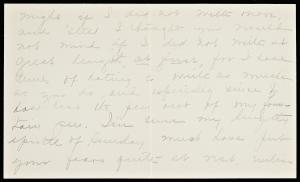 might if I did not write more,
and felt I thought you would
not mind if I did not write at
great length at first, for I have
hating to write as much
as you do and especially since I
lost the pen out of my
pen. I'm sure my lengthy
epistle of Sunday must have put
your fears quite at rest unless